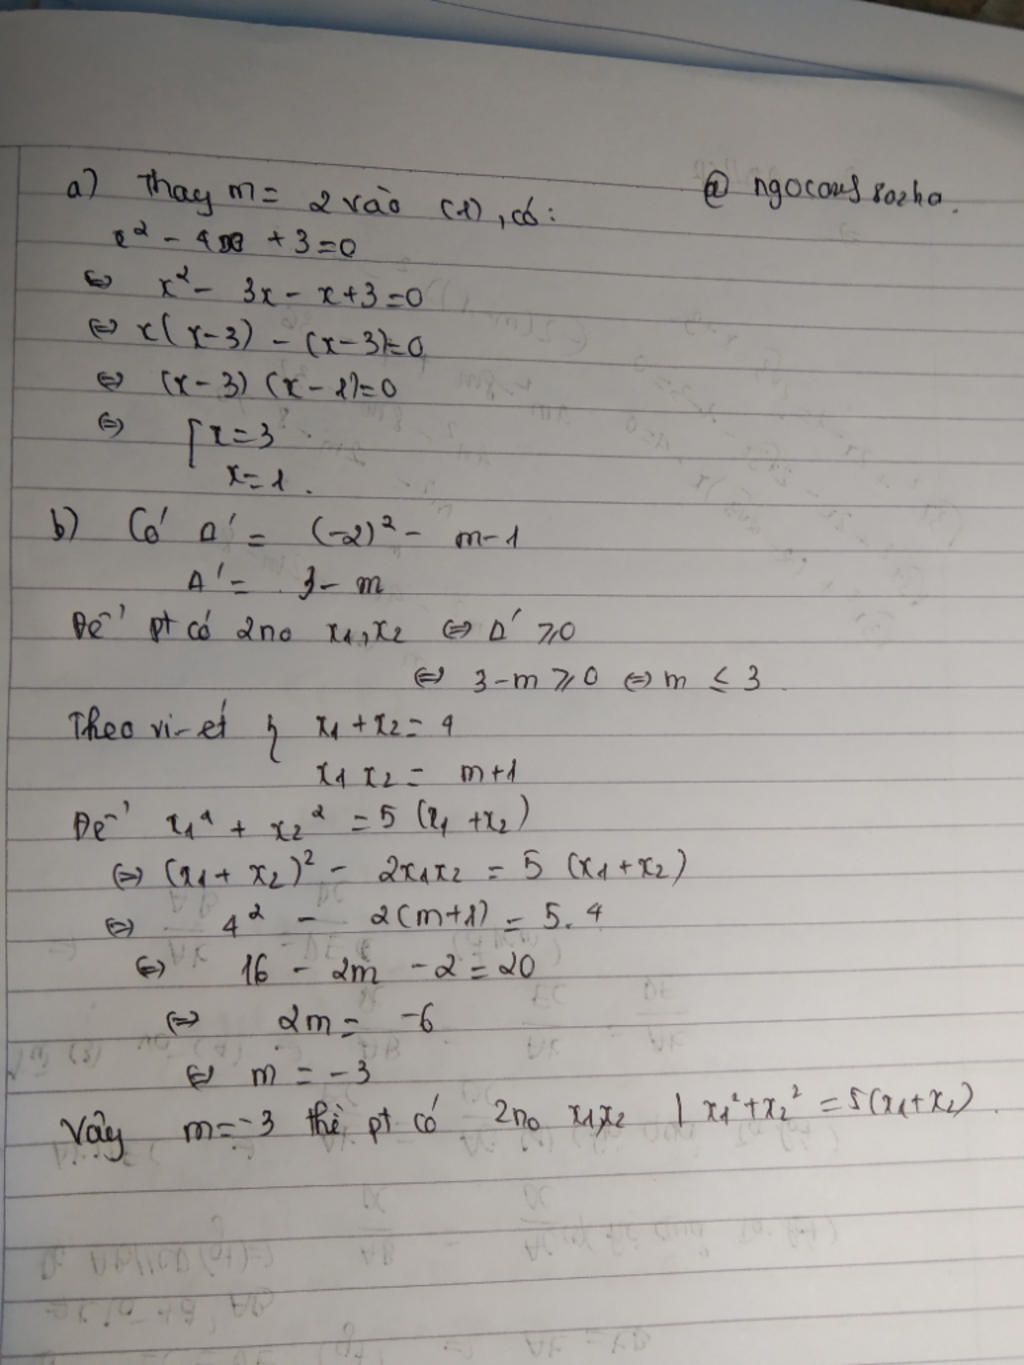 @ ngocans sozha.
a) Thay m = 2 vào (1), có:
x² - 4x + 3 = 0
⇔ x² - 3x - x + 3 = 0
⇔ x(x-3) - (x-3) = 0
⇔ (x-3) (x-1) = 0
⇔ [ x = 3
x = 1.
b) Có Δ' = (-2)² - m-1
Δ' = 3 - m
Để pt có 2 no x₁, x₂ ⇔ Δ' ⩾ 0
⇔ 3-m ⩾ 0 ⇔ m ≤ 3.
Theo vi-ét { x₁ + x₂ = 4
x₁ x₂ = m+1
Để x₁² + x₂² = 5 (x₁ + x₂)
⇔ (x₁ + x₂)² - 2x₁x₂ = 5 (x₁ + x₂)
⇔ 4² - 2(m+1) = 5.4
⇔ 16 - 2m - 2 = 20
⇔ 2m = -6
⇔ m = -3
Vậy m = -3 thì pt có 2 no x₁, x₂ | x₁² + x₂² = 5(x₁ + x₂).